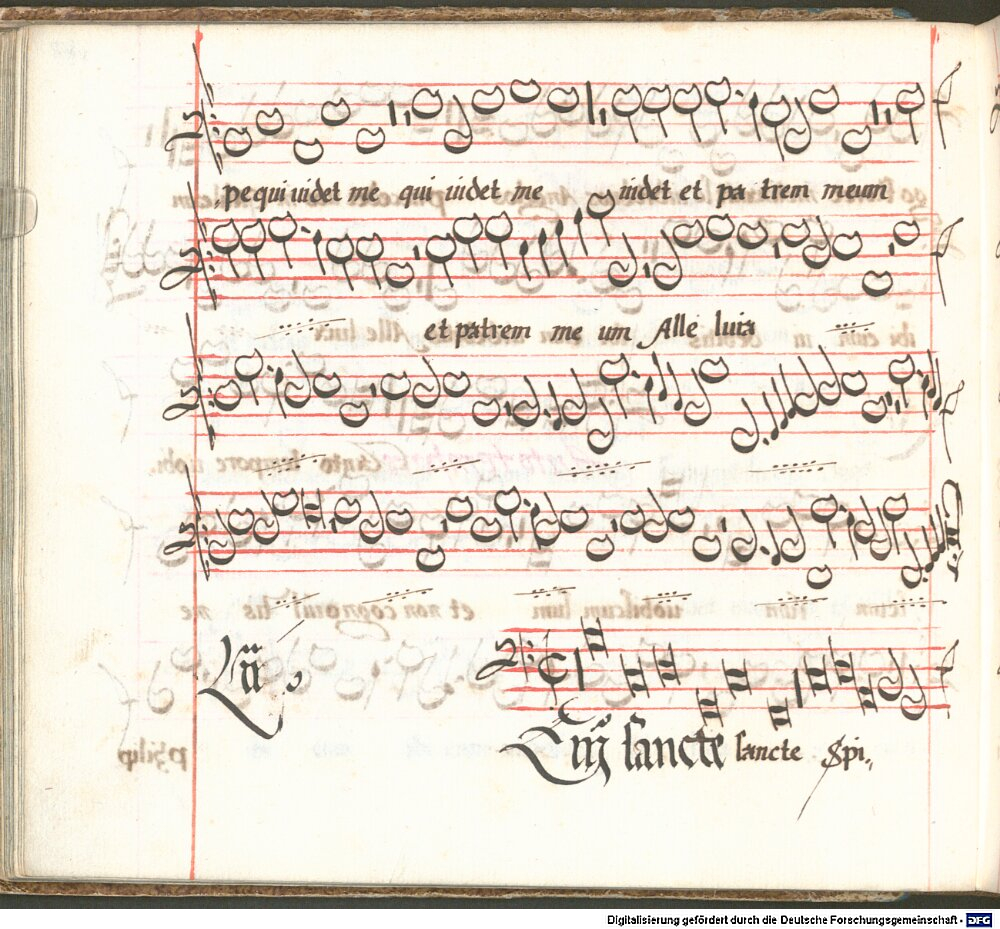 pe qui uidet me qui uidet me uidet et pa trem meum
et patrem me um Alle luia
sancte sancte Spi,,
Digitalisierung gefördert durch die Deutsche Forschungsgemeinschaft - DFG